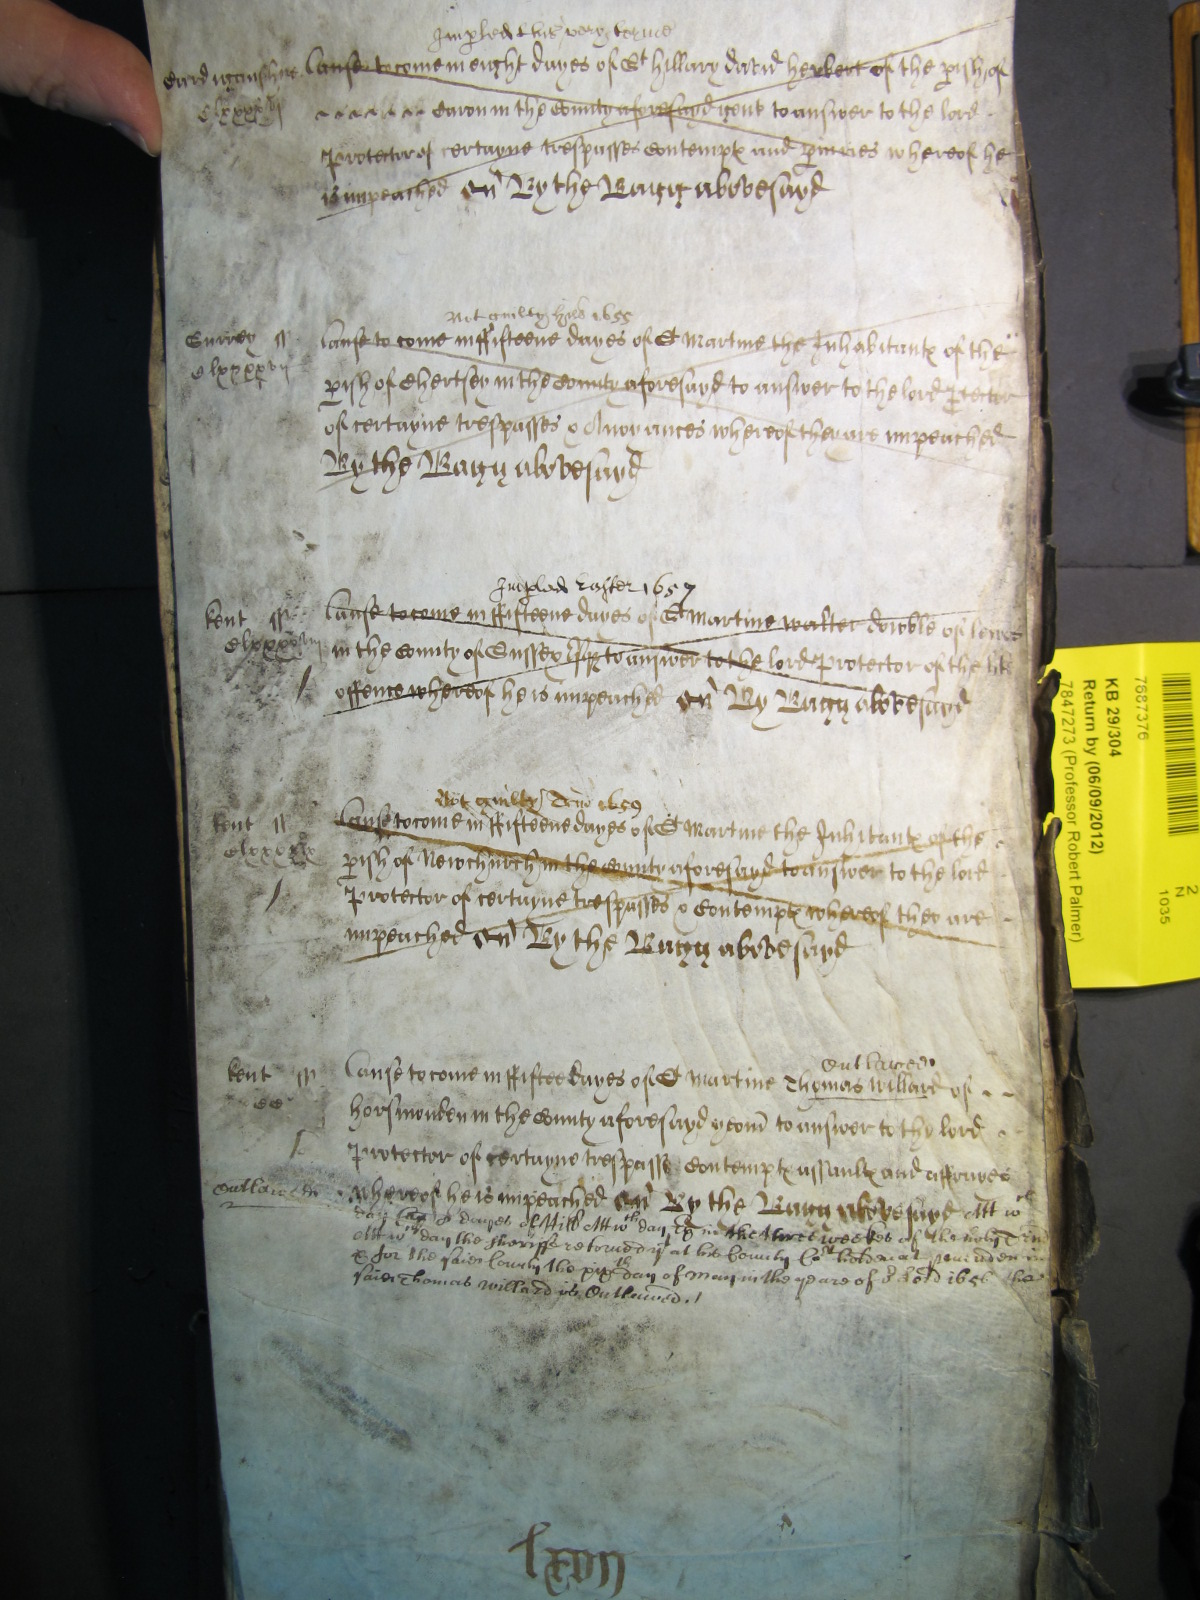 Impled this very terme
Cardiganshire Cause to come in eight dayes of St Hillary david herbert of the pish of
Caron in the County aforesayd gent to answer to the lord
Protector of certayne trespasses Contempts and Iniuries whereof he
is impeached By the Bagg abovesayd
Not guilty 1655
Surrey ss Cause to come in ffifteene dayes of St Martine the Inhabitants of the
Clxxxxvij pish of Chertsey in the County aforesayd to answer to the lord Ptector
of certayne trespasses & Anoyances whereof they are impeached
By the Bagg abovesayd
Impled Easter 1657
Kent ss Cause to come in ffifteene dayes of St Martine walter dobble of lewes
in the County of Sussex to answer to the lord Protector of the like
offence whereof he is impeached By Bagg abovesayd
Not guilty Trin 1659
Kent ss Cause to come in ffifteene dayes of St Martine the Inhitants of the
pish of Newchurch in the County aforesayd to answer to the lord
Protector of certayne trespasses & Contempts whereof they are
impeached By the Bagg abovesayd
Outlawed
Kent ss Cause to come in ffifteedayes of St Martine Thomas Willard of
CC horsmonden in the County aforesayd yeom to answer to the lord
Protector of certayne trespasses Contempts assaults and affrayes
Outlawed whereof he is impeached By the Bagg abovesayd Att wch
day dayes of Hill Att wch day in the three weekes of the holy Trin
Att wch day the Sheriffe retorned yt at his County Cort holden at
& for the said County the day of May in the yeare of or Lord 1656 the
said Thomas Willard is Outlawed.
lxvij
7687376
KB 29/304
Return by (06/09/2012)
7847273 (Professor Robert Palmer)
2
N
1035